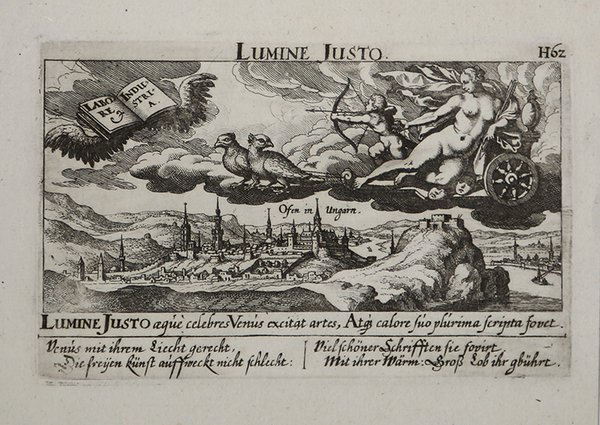 LUMINE JUSTO.
H62
LABORE & INDUSTRIA.
Ofen in Ungarn.
LUMINE JUSTO æquè celebres Venus excitat artes, Atq; calore suo plurima scripta fovet.
Venus mit ihrem Liecht gerecht,
Die freijen künst auffweckt nicht schlecht:
Viel schöner Schrifften sie fovirt
Mit ihrer Wärm: Groß Lob ihr gbührt.